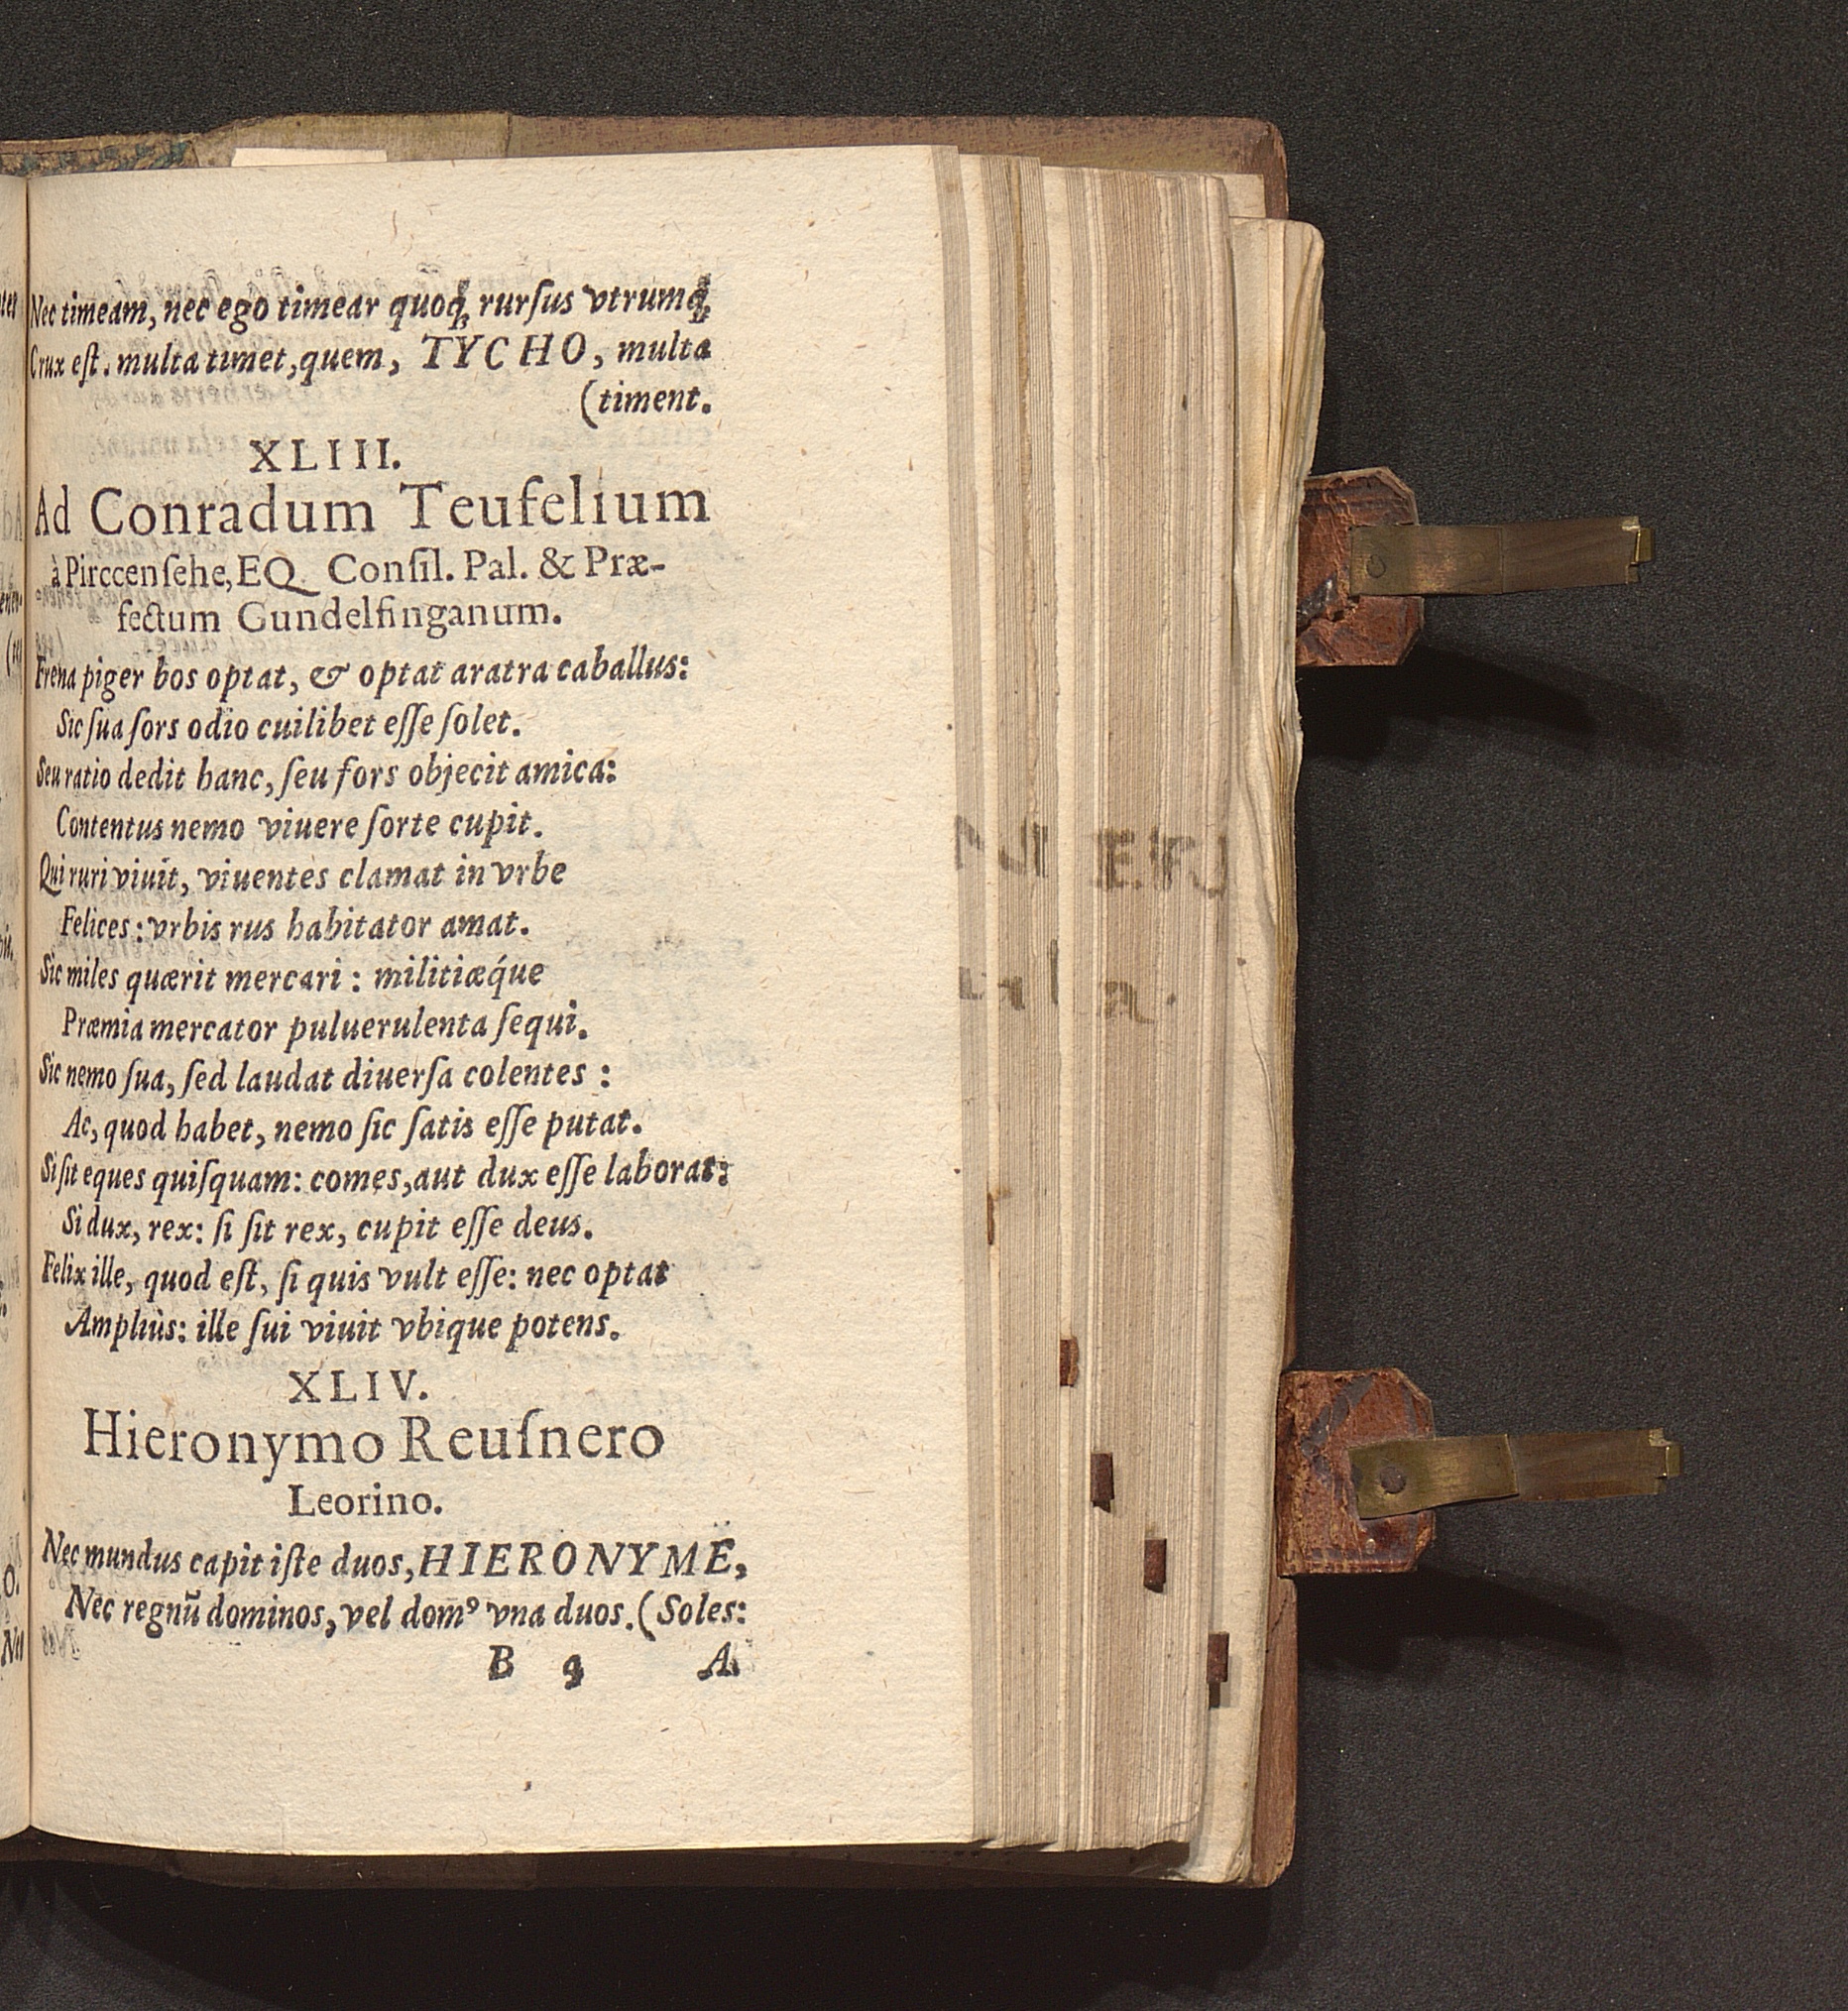 Nec timeam, nec ego timear quoq́; rurſus vtrumq́;
Crux eſt. multa timet, quem, TYCHO, multa
(timent.
XLIII.
Ad Conradum Teufelium
à Pirccenſehe, EQ. Conſil. Pal. & Præ-
fectum Gundelfinganum.
Frena piger bos optat, & optat aratra caballus:
Sic ſua ſors odio cuilibet eſſe ſolet.
Seu ratio dedit hanc, ſeu fors objecit amica:
Contentus nemo viuere ſorte cupit.
Qui ruri viuit, viuentes clamat in vrbe
Felices: vrbis rus habitator amat.
Sic miles quærit mercari: militiæq́ue
Præmia mercator puluerulenta ſequi.
Sic nemo ſua, ſed laudat diuerſa colentes:
Ac, quod habet, nemo ſic ſatis eſſe putat.
Si ſit eques quiſquam: comes, aut dux eſſe laborat:
Si dux, rex: ſi ſit rex, cupit eſſe deus.
Felix ille, quod eſt, ſi quis vult eſſe: nec optat
Ampliùs: ille ſui viuit vbique potens.
XLIV.
Hieronymo Reuſnero
Leorino.
Nec mundus capit iſte duos, HIERONYME,
Nec regnũ dominos, vel domꝰ vna duos. (Soles:
B 9 A